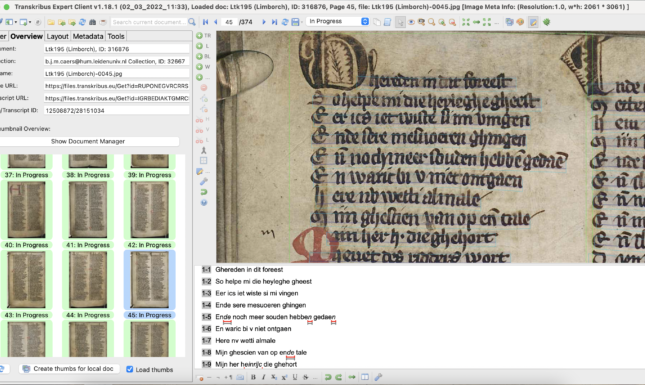 Transkribus Expert Client v1.18.1 (02_03_2022_11:33), Loaded doc: Ltk195 (Limborch), ID: 316876, Page 45, file: Ltk195 (Limborch)-0045.jpg [Image Meta Info: (Resolution:1.0, w*h: 2061 * 3061) ]
Search current document...
45 /374
In Progress
er Overview Layout Metadata Tools
ment: Ltk195 (Limborch), ID: 316876
ction: b.j.m.caers@hum.leidenuniv.nl Collection, ID: 32667
ame: Ltk195 (Limborch)-0045.jpg
e URL: https://files.transkribus.eu/Get?id=RUPONEGVRCRRS
script URL: https://files.transkribus.eu/Get?id=IGRBEDIAKTGMRC
/Transcript ID: 12506872/28151034
umbnail Overview:
Show Document Manager
37: In Progress 38: In Progress 39: In Progress
40: In Progress 41: In Progress 42: In Progress
43: In Progress 44: In Progress 45: In Progress
Create thumbs for local doc
Load thumbs
hereden in dit foreest
So helpe mi die heyleghe gheest
Eer ics iet wiste si mi vingen
Ende sere mesuoeren ghingen
En noch meer souden hebbē gedaē
En waric bi v niet ontgaen
Here nv wetti almale
Mijn ghescien van op en tale
ijn her h. die ghehort
1-1 Ghereden in dit foreest
1-2 So helpe mi die heyleghe gheest
1-3 Eer ics iet wiste si mi vingen
1-4 Ende sere mesuoeren ghingen
1-5 Ende noch meer souden hebben gedaen
1-6 En waric bi v niet ontgaen
1-7 Here nv wetti almale
1-8 Mijn ghescien van op ende tale
1-9 Mijn her heinrijc die ghehort